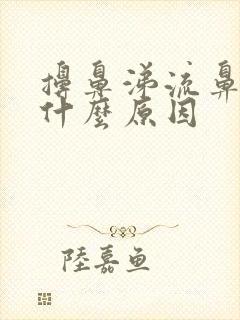 擤鼻涕流鼻
什麼原因
陸嘉魚